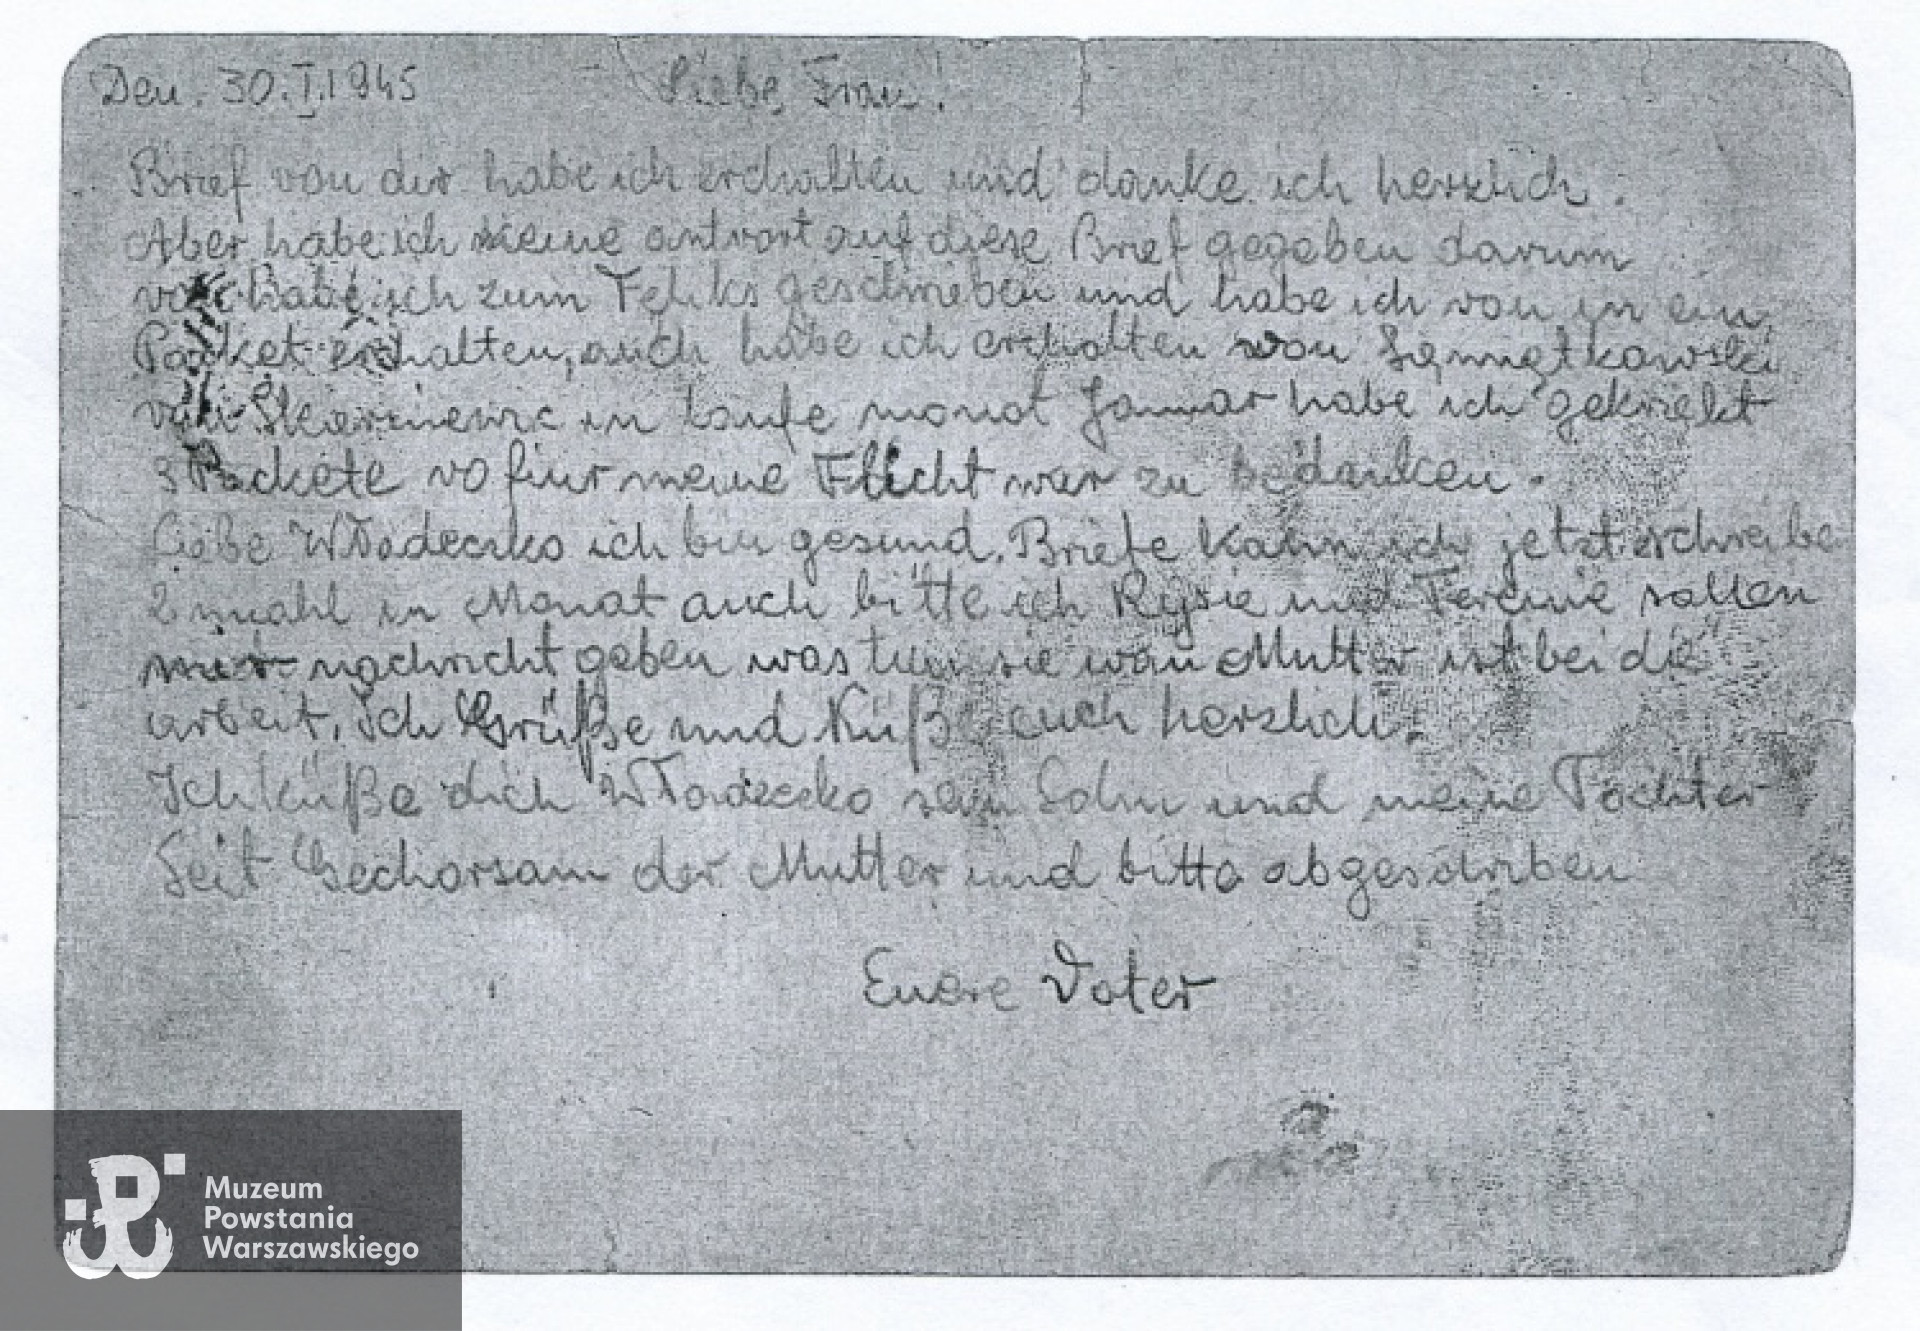 Den. 30.I.1945 Liebe Frau!
Brief von dir habe ich erchalten und danke ich herzlich.
Aber habe ich kleine antvort auf diese Brief gegeben darum
habe ich zum Feliks geschrieben und habe ich von in ein
Packet erchalten, auch habe ich erchalten von
von in laufe monat Januar habe ich gekriekt
3 Packete vo fiur meine Flicht war zu bedanken.
Liebe Włodeczko ich bin gesund. Briefe kann ich jetzt schreibe
2 muahl in Monat auch bitte ich Rysie und sollen
mir nachricht geben was tun sie wan Mutter ist bei die
arbeit. Ich Grüße und Küße euch herzlich.
Ich küße dich Włodeczko und meine Tochter
Seit Gechorsam der Mutter und bitte
Euere Vater
Muzeum
Powstania
Warszawskiego